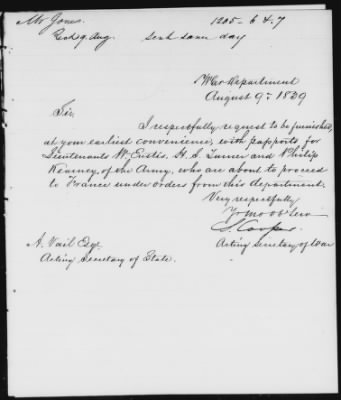 Mr Jones.
Recd 9. Aug. sent same day
1205 - 6 & 7
War Department
August 9th 1839
Sir,
I respectfully request to be furnished,
at your earliest convenience, with passports for
Lieutenants W. Eustis. H. S. Turner and Philip
Kearney, of the Army, who are about to proceed
to France under orders from this department.
Very respectfully
Yr Mo ob Ser
S. Cooper
Acting Secretary of War
A. Vail Esqr
Acting Secretary of State.